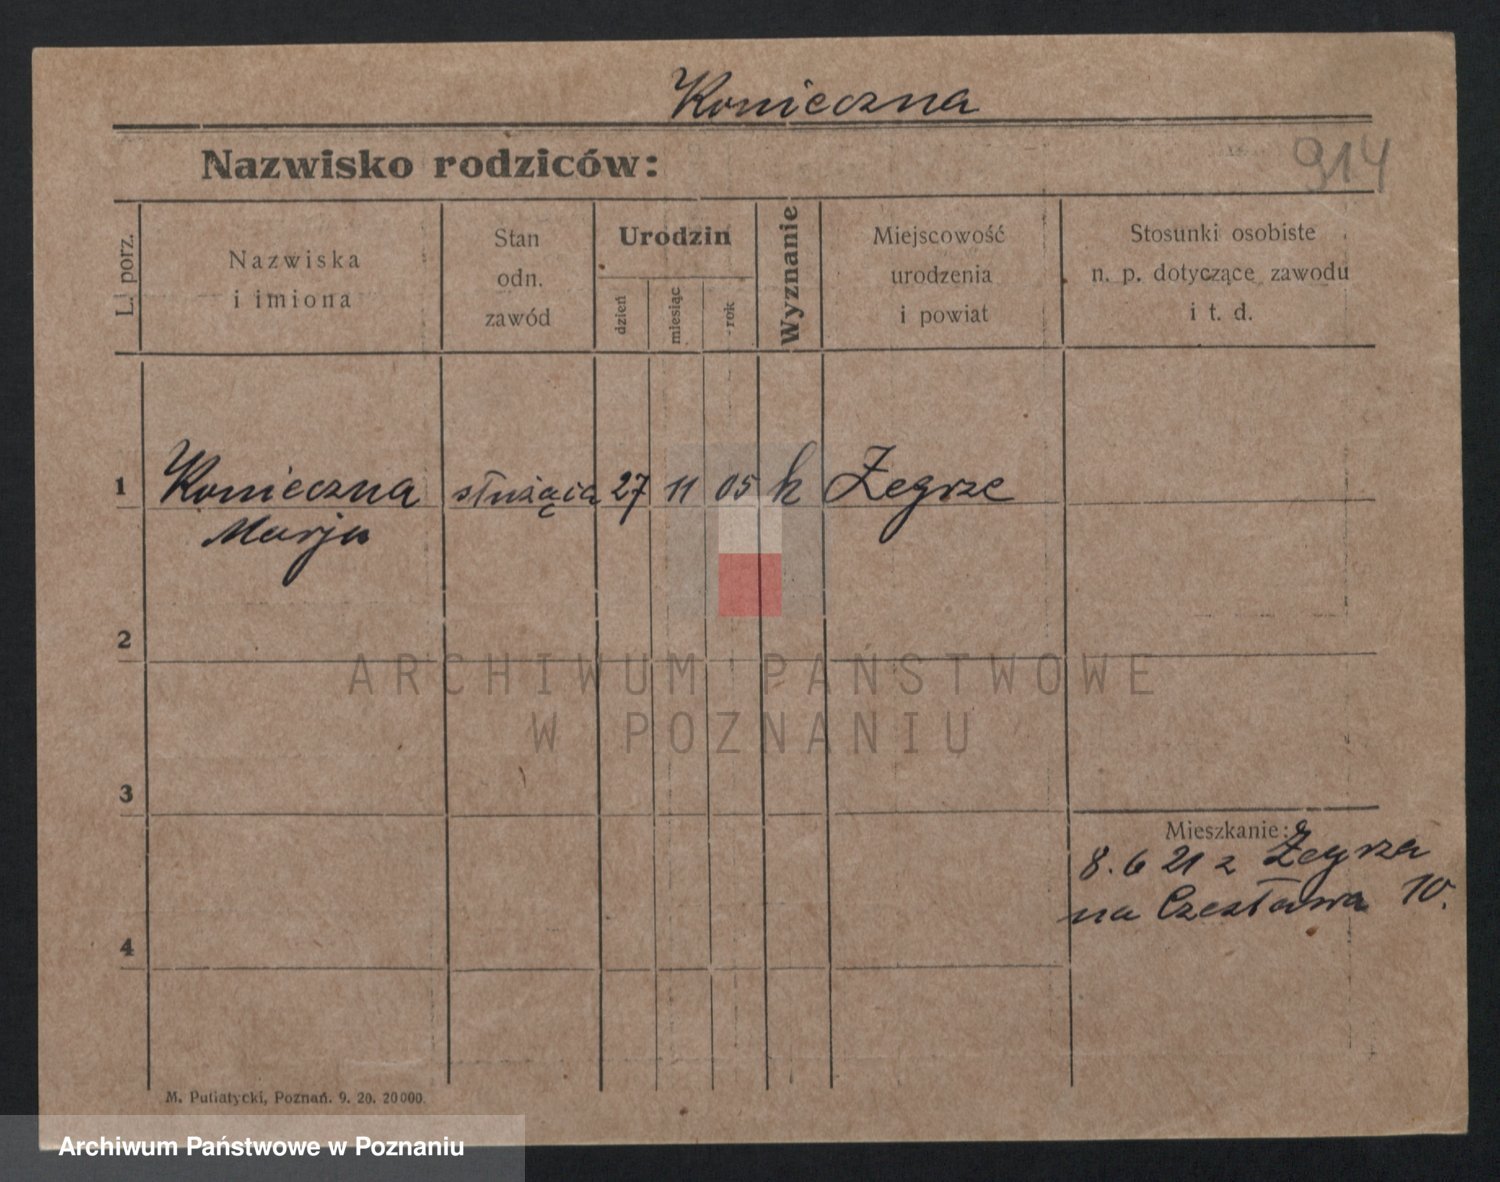 Konieczna
Nazwisko rodziców:
914
L. porz.
Nazwiska
i imiona
Stan
odn.
zawód
Urodzin
dzień
miesiąc
rok
Wyznanie
Miejscowość
urodzenia
i powiat
Stosunki osobiste
n. p. dotyczące zawodu
i t. d.
1 Konieczna służąca 27 11 05 k Żegrze
Marja
2
ARCHIWUM PAŃSTWOWE
W POZNANIU
3
Mieszkanie:
8. 6 21 z Żegrza
na Czesława 10.
4
M. Putiatycki, Poznań. 9. 20. 20000.
Archiwum Państwowe w Poznaniu